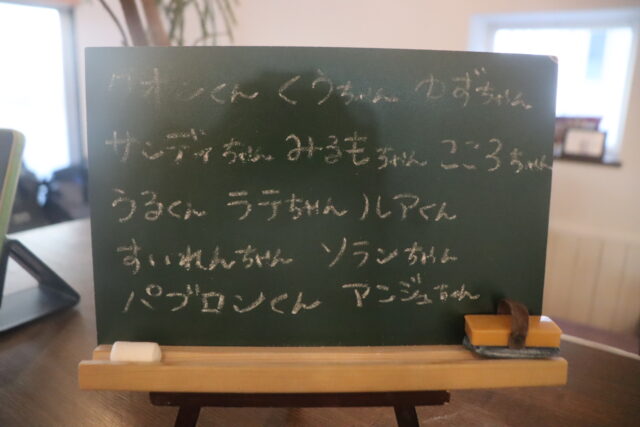 クオンくん くうちゃん ゆずちゃん
サンディちゃん みるもちゃん こころちゃん
うるくん ラテちゃん ルアくん
すいれんちゃん ソランちゃん
パブロンくん アンジュちゃん